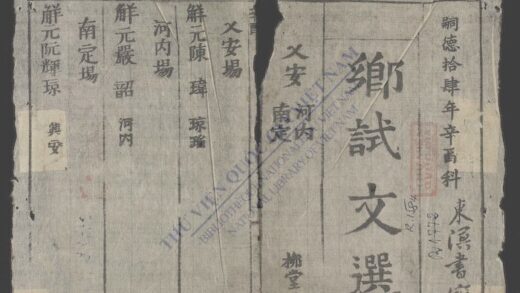 嗣德拾肆年辛酉科
東溟書
鄉試文選
乂安
河内
南定
柳堂
乂安場
觧元陳瑋 瓊瑠
河内場
觧元嚴韶 河内
南定場
觧元阮輝琼
興安
THƯ VIỆN QUỐC GIA VIỆT NAM
BIBLIOTHÈQUE NATIONALE DU VIETNAM
NATIONAL LIBRARY OF VIETNAM